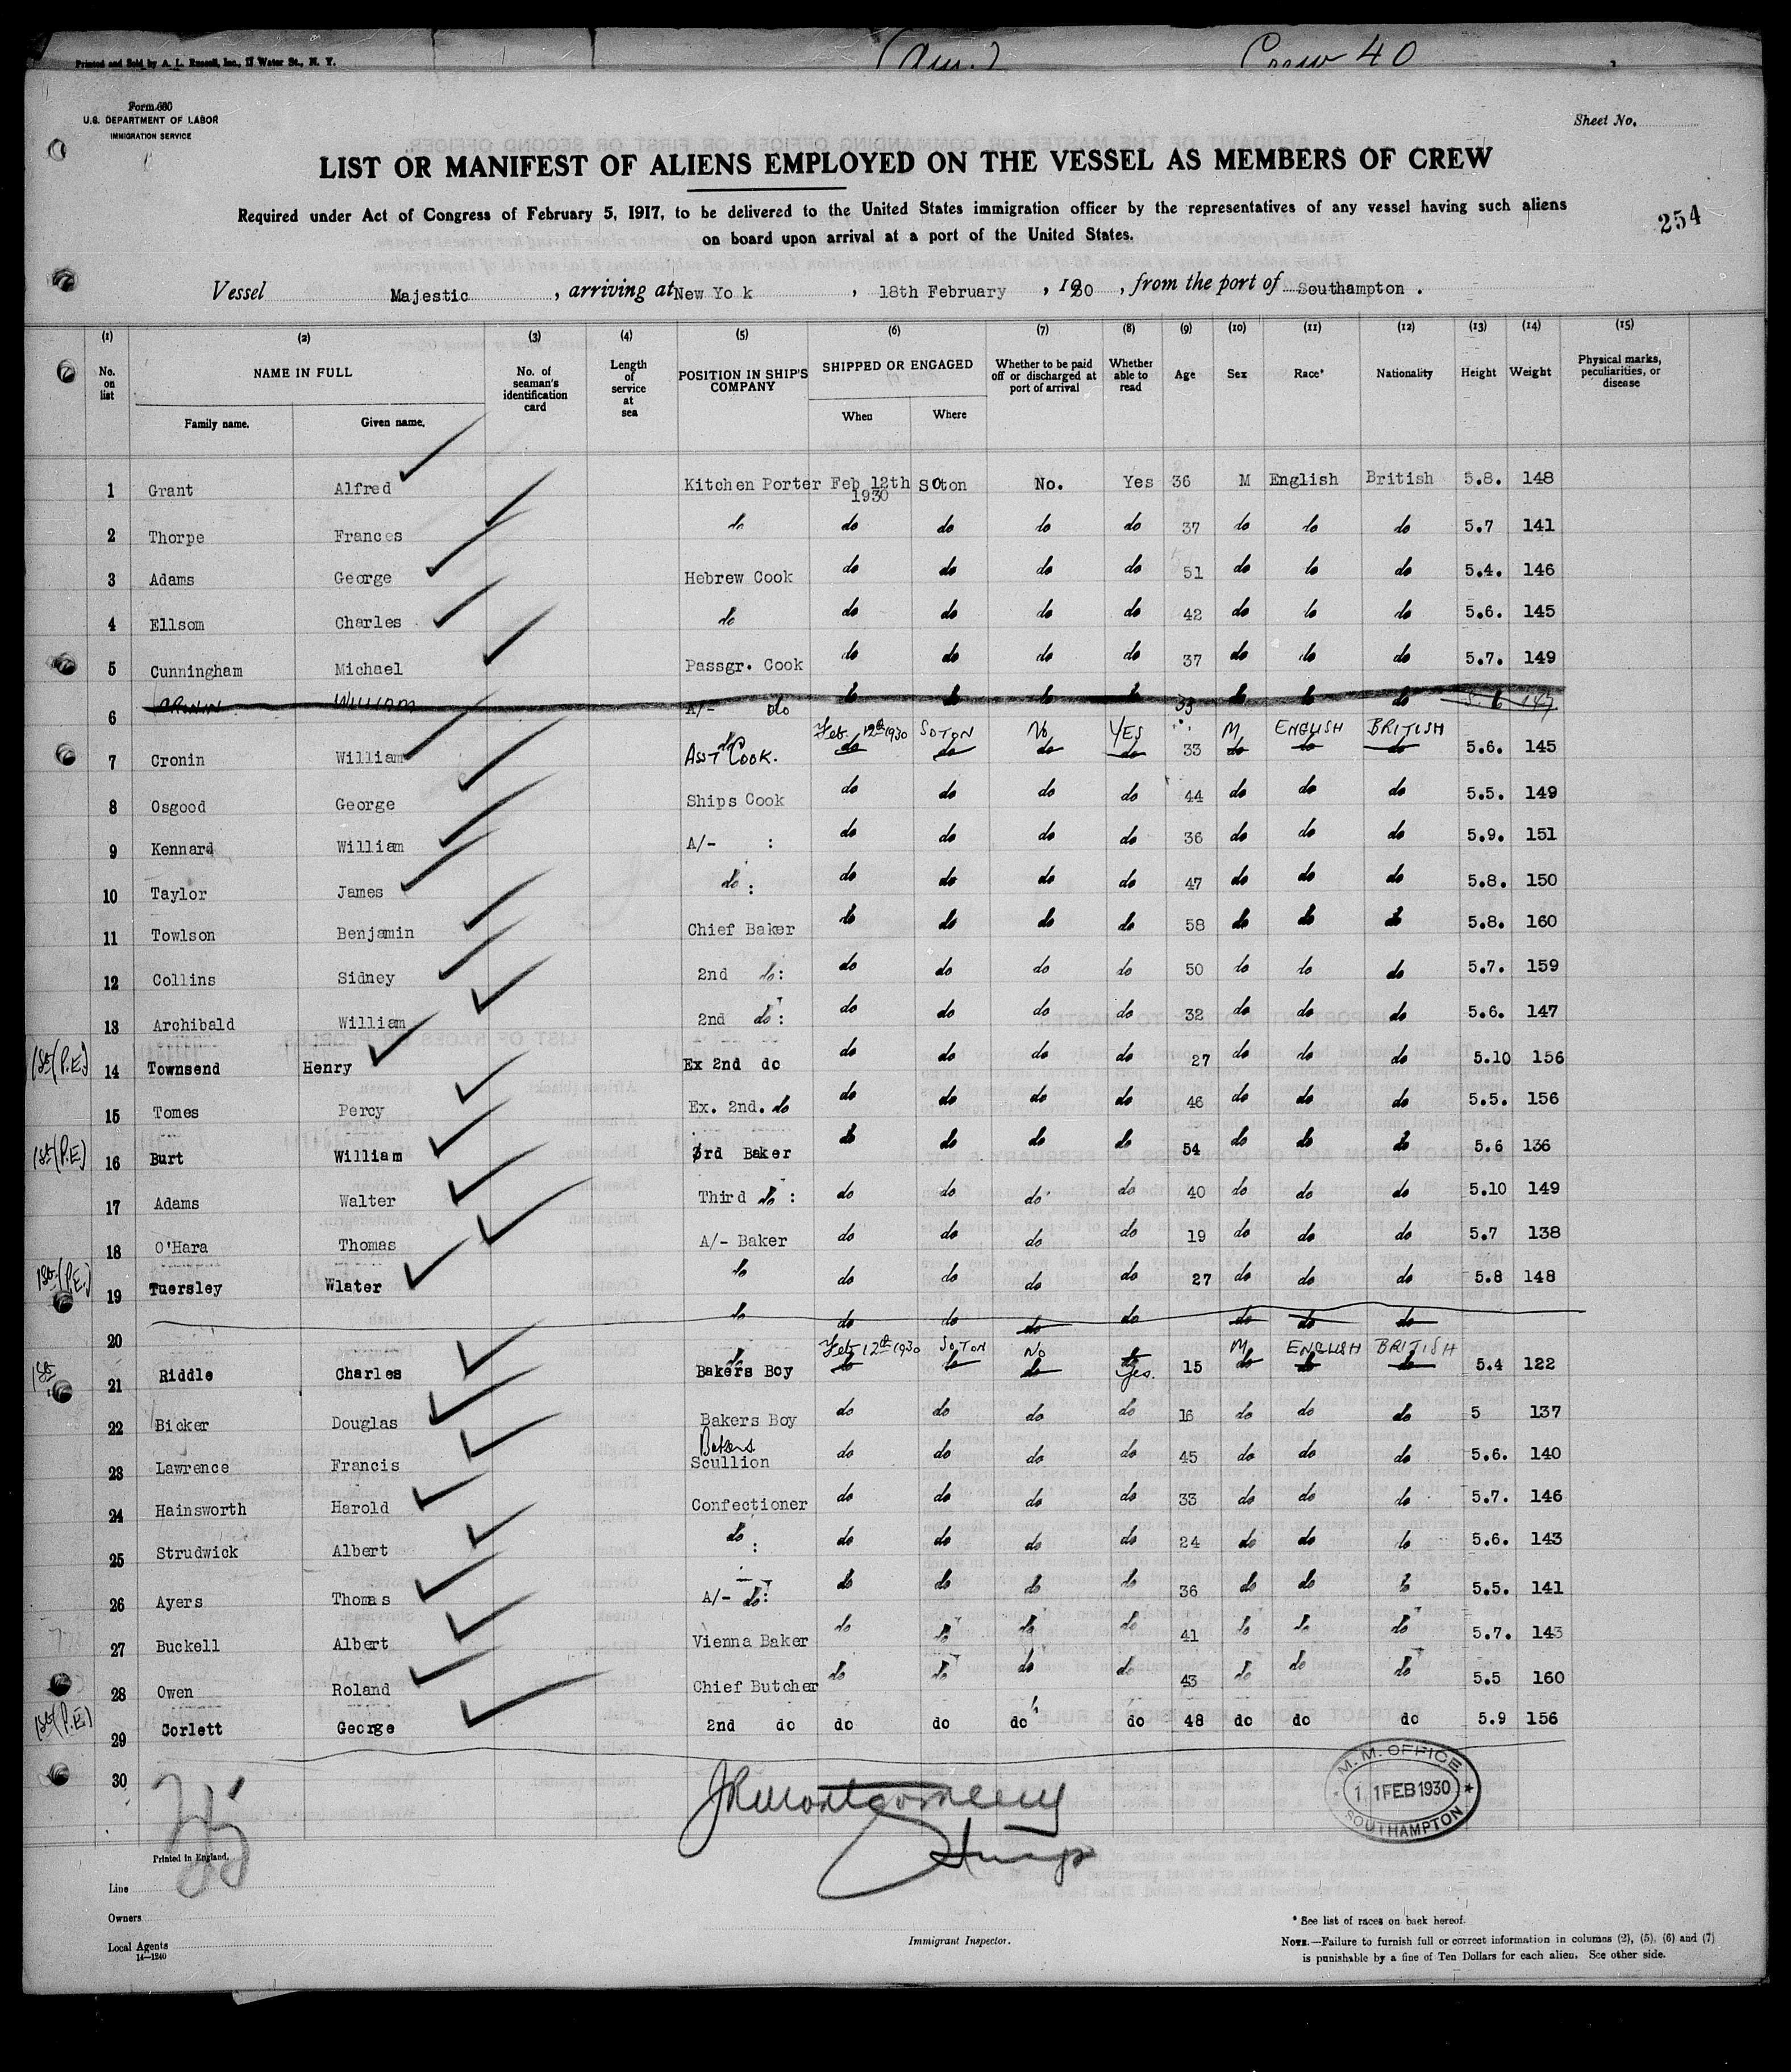 Printed and Sold by A. L. Russell, Inc., 17 Water St., N. Y.
Crew 40
Form 680
U.S. DEPARTMENT OF LABOR
IMMIGRATION SERVICE
Sheet No.
LIST OR MANIFEST OF ALIENS EMPLOYED ON THE VESSEL AS MEMBERS OF CREW
Required under Act of Congress of February 5, 1917, to be delivered to the United States immigration officer by the representatives of any vessel having such aliens
on board upon arrival at a port of the United States.
254
Vessel Majestic , arriving at New Yo k , 18th February , 1930 , from the port of Southampton .
(1) (2) (3) (4) (5) (6) (7) (8) (9) (10) (11) (12) (13) (14) (15)
No. on list NAME IN FULL Family name. Given name. No. of seaman's identification card Length of service at sea POSITION IN SHIP'S COMPANY SHIPPED OR ENGAGED When Where Whether to be paid off or discharged at port of arrival Whether able to read Age Sex Race* Nationality Height Weight Physical marks, peculiarities, or disease
1 Grant Alfred Kitchen Porter Feb 12th 1930 SOton No. Yes 36 M English British 5.8. 148
2 Thorpe Frances do do do do do 37 do do do 5.7 141
3 Adams George Hebrew Cook do do do do 51 do do do 5.4. 146
4 Ellsom Charles do do do do do 42 do do do 5.6. 145
5 Cunningham Michael Passgr. Cook do do do do 37 do do do 5.7. 149
6 CRONIN WILLIAM A/- do do do do do 33 do do do 5.6 147
7 Cronin William Asst Cook. Feb. 12th 1930 SOTON No YES 33 M ENGLISH BRITISH 5.6. 145
8 Osgood George Ships Cook do do do do 44 do do do 5.5. 149
9 Kennard William A/- : do do do do 36 do do do 5.9. 151
10 Taylor James do : do do do do 47 do do do 5.8. 150
11 Towlson Benjamin Chief Baker do do do do 58 do do do 5.8. 160
12 Collins Sidney 2nd do: do do do do 50 do do do 5.7. 159
13 Archibald William 2nd do: do do do do 32 do do do 5.6. 147
1st (P.E) 14 Townsend Henry Ex 2nd do do do do do 27 do do do 5.10 156
15 Tomes Percy Ex. 2nd. do do do do do 46 do do do 5.5. 156
1st (P.E) 16 Burt William 3rd Baker do do do do 54 do do do 5.6 136
17 Adams Walter Third do : do do do do 40 do do do 5.10 149
18 O'Hara Thomas A/- Baker do do do do 19 do do do 5.7 138
1st (P.E.) 19 Tuersley Wlater do do do do do 27 do do do 5.8 148
20 do do do do do do do do
1st 21 Riddle Charles Bakers Boy Feb 12th 1930 SOTON No Yes. 15 M ENGLISH BRITISH 5.4 122
22 Bicker Douglas Bakers Boy do do do do 16 do do do 5 137
23 Lawrence Francis Bakers Scullion do do do do 45 do do do 5.6. 140
24 Hainsworth Harold Confectioner do do do do 33 do do do 5.7. 146
25 Strudwick Albert do : do do do do 24 do do do 5.6. 143
26 Ayers Thomas A/- do: do do do do 36 do do do 5.5. 141
27 Buckell Albert Vienna Baker do do do do 41 do do do 5.7. 143
28 Owen Roland Chief Butcher do do do do 43 do do do 5.5 160
1st (P.E) 29 Corlett George 2nd do do do do do 48 do do do 5.9 156
30
M. M. OFFICE
11 FEB 1930
SOUTHAMPTON
JRMontgomery
Printed in England.
Line
Owners
Local Agents
14—1240
Immigrant Inspector.
* See list of races on back hereof.
NOTE.—Failure to furnish full or correct information in columns (2), (5), (6) and (7)
is punishable by a fine of Ten Dollars for each alien. See other side.